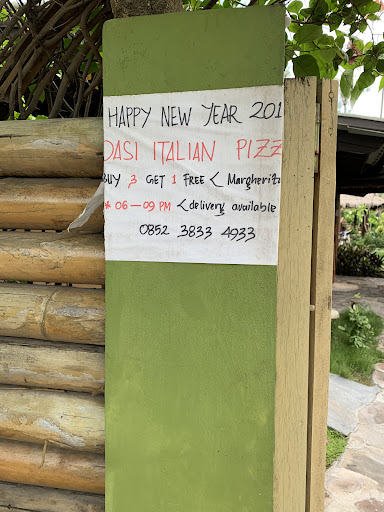 HAPPY NEW YEAR 201
OASI ITALIAN PIZZ
BUY 3 GET 1 FREE < Margherita
* 06 - 09 PM < delivery available
0852 3833 4933